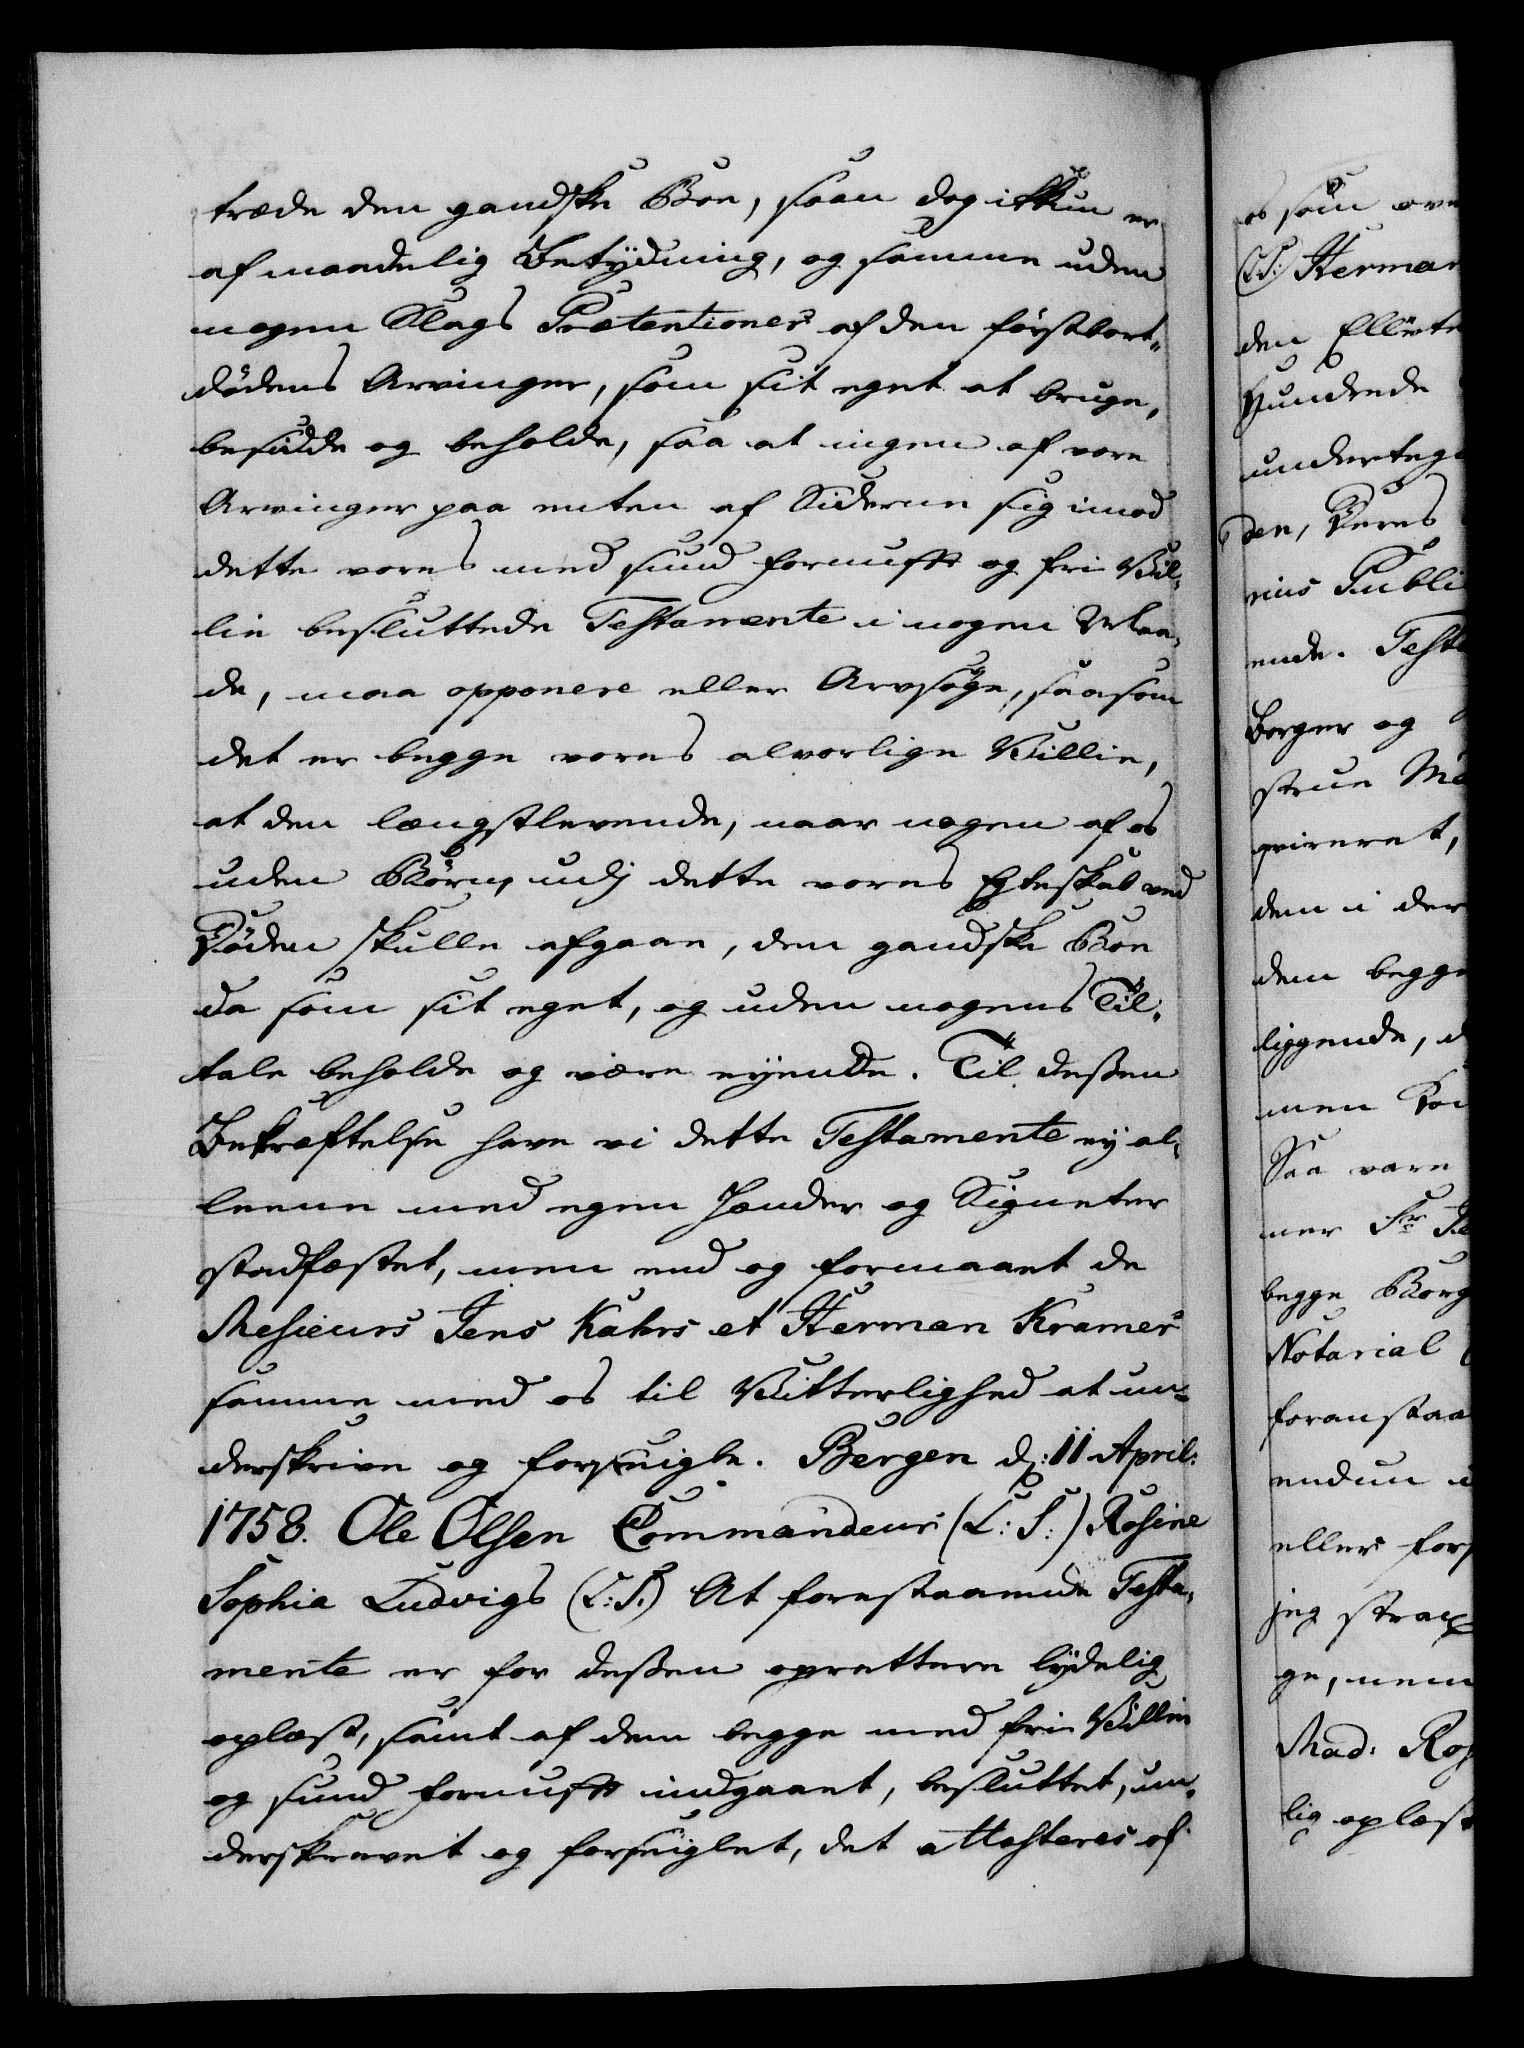 træde den gandske Boe, saan dog ikkun er
af maadelig Betydning, og samme uden
nogen Slags Prætentioner af den førstbort-
dødens Arvinger, som sit eget at bruge,
besidde og beholde, saa at ingen af vore
Arvinger paa enten af Siderne sig imod
dette vores med sund fornuft og fri Vil-
lie besluttede Testamente i nogen Maa-
de, maa opponere eller Arvsøge, saasom
det er begge vores alvorlige Villie,
at den længstlevende, naar nogen af os
uden Børn, udj dette vores Egteskab ved
Døden skulle afgaae, den gandske Boe
da som sit eget, og uden nogens Til-
tale beholde og være eyende. Til deßen
Bekræftelse have vi dette Testamente ey al-
leene med egen Hænder og Signeter
stadfæstet, men end og formaaet de
Mesieurs Jens Kahrs et Herman Kramer
samme med os til Vitterlighed at un-
derskrive og forseigle. Bergen d: 11 April:
1758. Ole Olsen Commandeur (L: S:) Rosine
Sophia Ludvigs (L: S:) At forestaaende Testa-
mente er for deßen oprettere lydelig
oplæst, samt af dem begge med fri Villie
og sund fornuft indgaaet, besluttet, un-
derskrevet og forseiglet, det attesteres af
os som ove
(L.S.) Herman
den Ellevte
Hundrede
underteg
den, Kers
rius Publi
ende. Test
Borger og
strue Ma
qvireret,
dem i der
dem begge
liggende, d
men
Saa vare
ner Sr Je
begge Borg
Notarial
foranstaa
endnu
eller fors
jeg strax
ge, men
Mad: Ros
lig oplæst